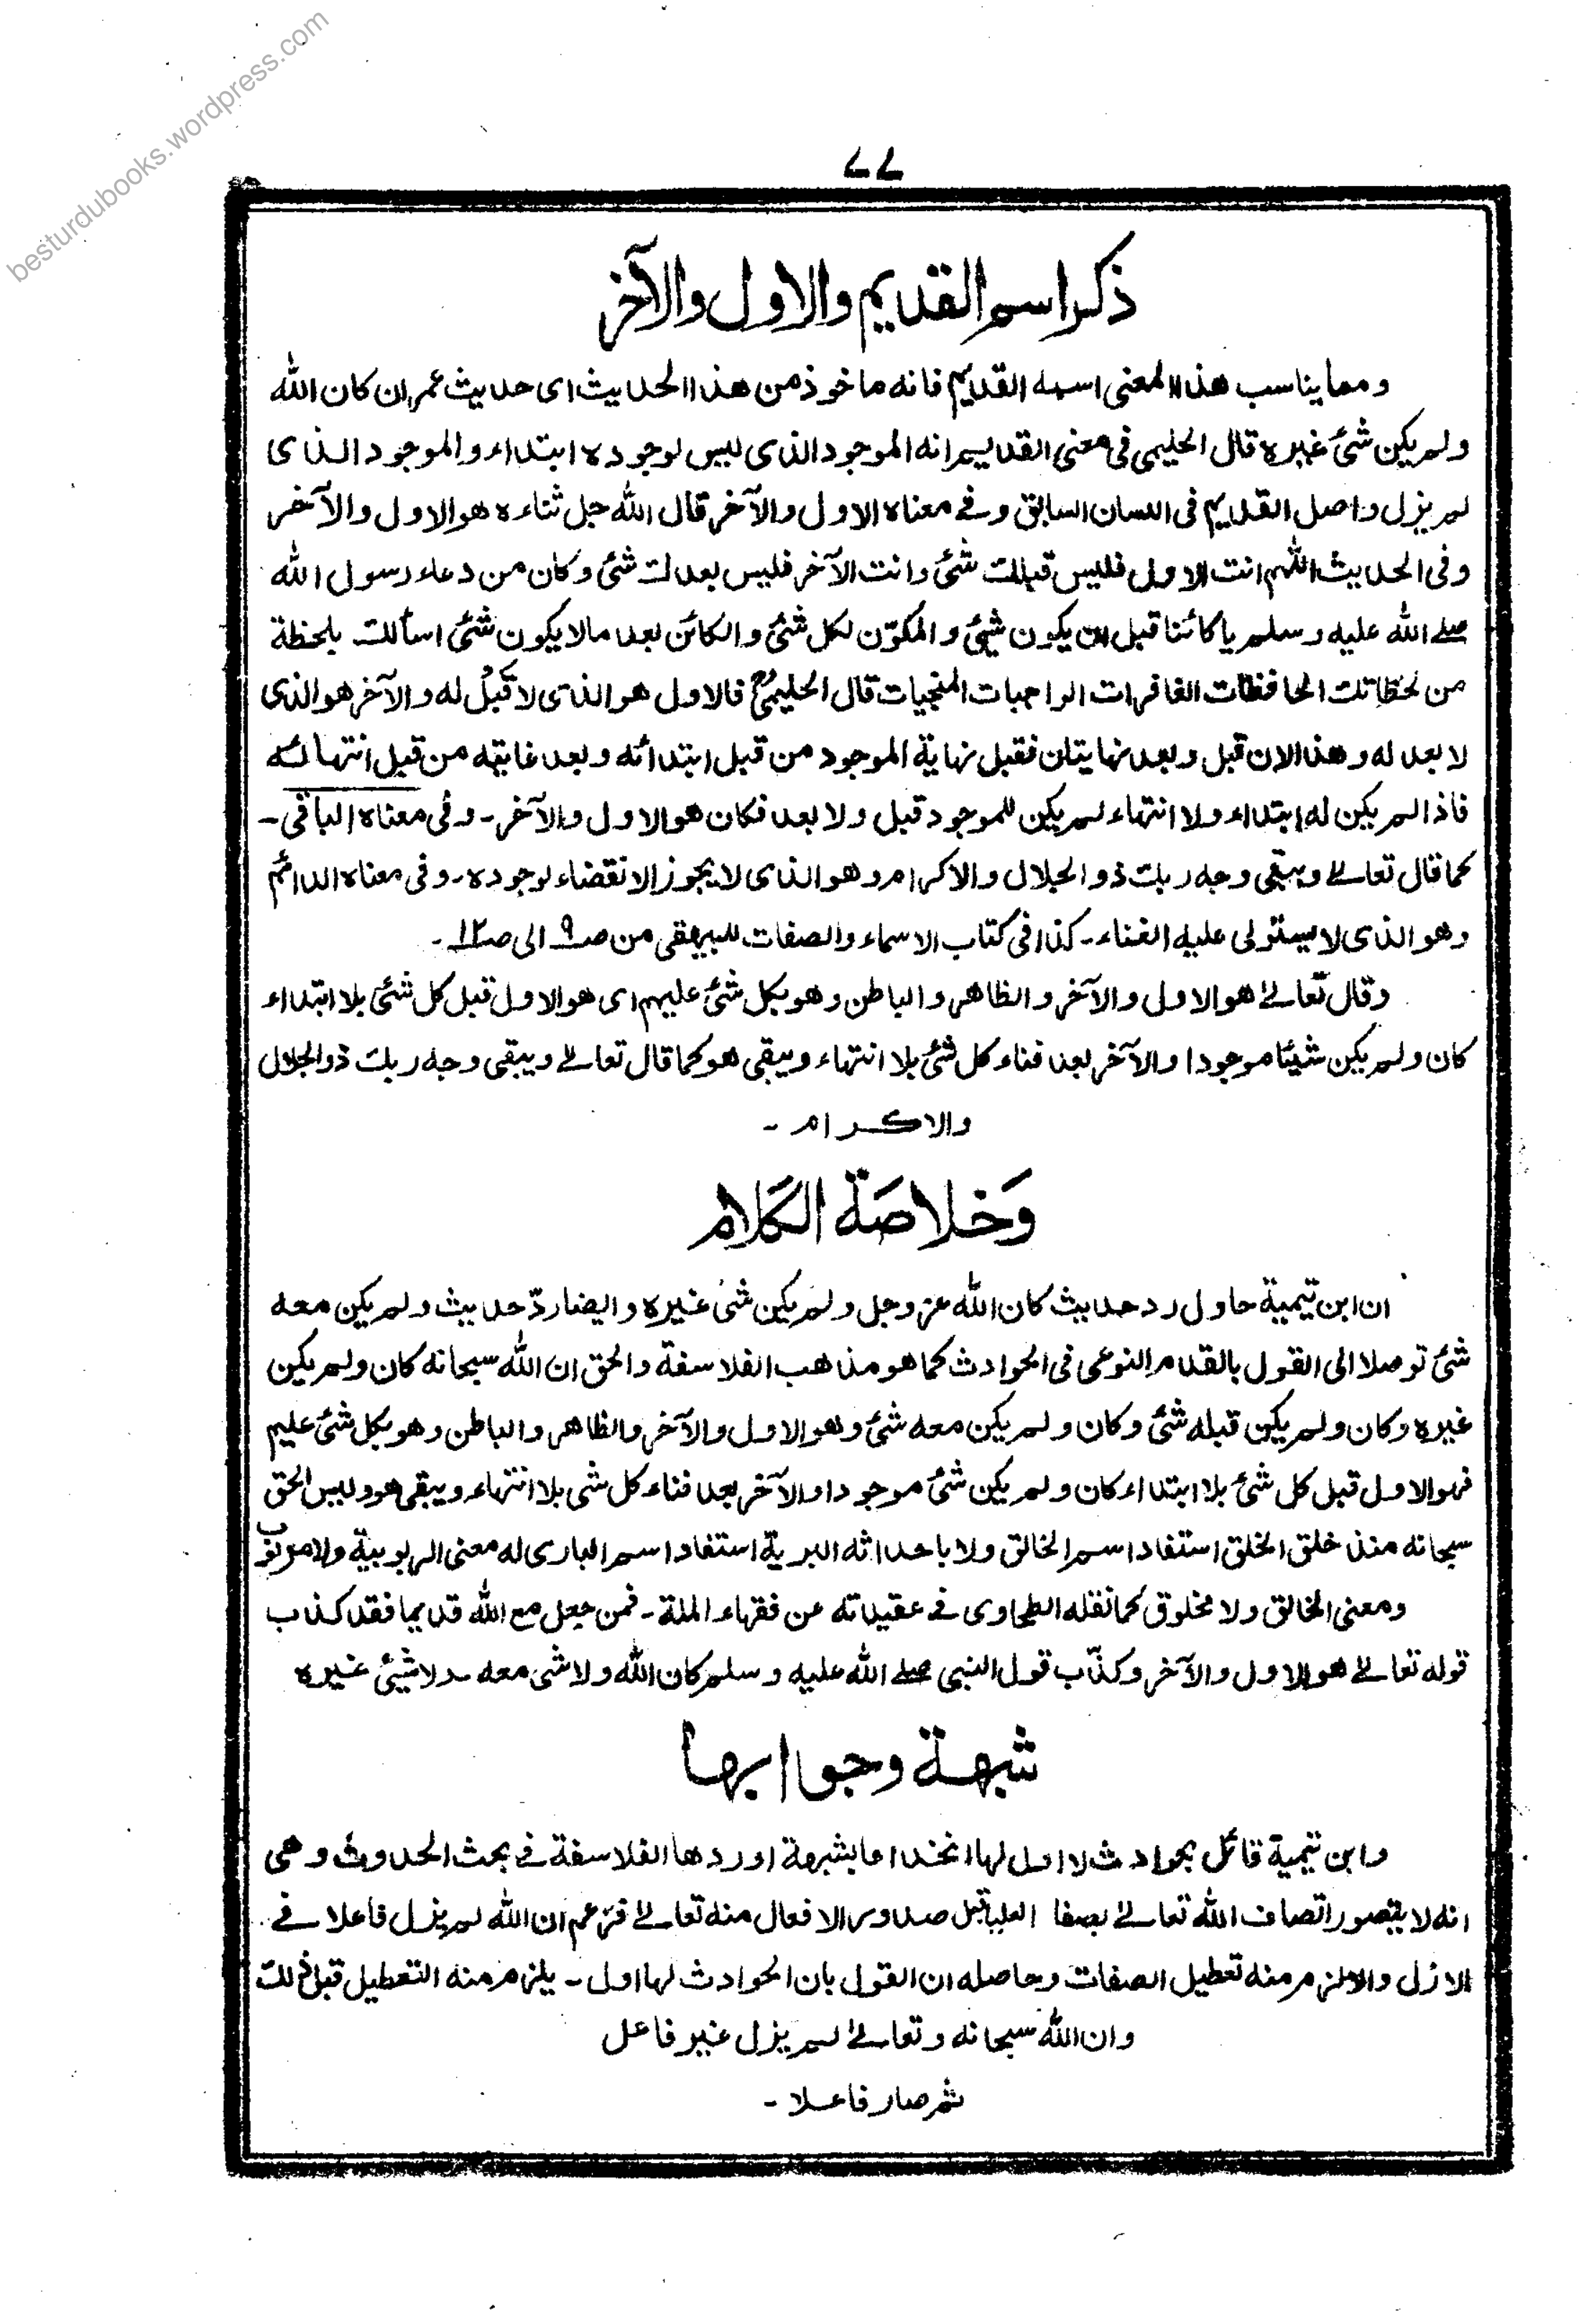 besturdubooks.wordpress.com
۷۷
ذكر اسم القديم والاول والآخر
ومما يناسب هذا المعنى اسمه القديم فانه ماخوذ من هذا الحديث اى حديث عمران كان الله
ولم يكن شئ غيره قال الحليمى فى معنى القديم انه الموجود الذى ليس لوجوده ابتداء والموجود الذى
لم يزل واصل القديم فى اللسان السابق وفى معناه الاول والآخر قال الله جل ثناءه هو الاول والآخر
وفى الحديث اللهم انت الاول فليس قبلك شئ وانت الآخر فليس بعدك شئ وكان من دعاء رسول الله
صلے الله عليه وسلم يا كائنا قبل ان يكون شئ والمكوّن لكل شئ والكائن بعد مالا يكون شئ اسألك بلحظة
من لحظاتك الحافظات الغافرات الواجبات المنجيات قال الحليمىؒ فالاول هو الذى لا قَبْلُ له والآخر هو الذى
لا بعد له وهذا لان قبل وبعد نهايتان فقبل نهاية الموجود من قبل ابتدائه وبعد غايته من قبل انتهائه
فاذا لم يكن له ابتداء ولا انتهاء لم يكن للموجود قبل ولا بعد فكان هو الاول والآخر۔ وفى معناه الباقى۔
كما قال تعالے ويبقى وجه ربك ذو الجلال والاكرام وهو الذى لا يجوز الانقضاء لوجوده۔ وفى معناه الدائم
وهو الذى لا يستولى عليه الفناء۔ كذا فى كتاب الاسماء والصفات للبيهقى من صـ۹ الى صـ۱۲۔
وقال تعالےٰ هو الاول والآخر والظاهر والباطن وهو بكل شئ عليم اى هو الاول قبل كل شئ بلا ابتداء
كان ولم يكن شيئا موجودا والآخر بعد فناء كل شئ بلا انتهاء ويبقى هو كما قال تعالے ويبقى وجه ربك ذو الجلال
والاكرام۔
وَخلاصَة الكَلام
ان ابن تيمية حاول رد حديث كان الله عز وجل ولم يكن شئ غيره وايضا ردّ حديث ولم يكن معه
شئ توصلا الى القول بالقدم النوعى فى الحوادث كما هو مذهب الفلاسفة والحق ان الله سبحانه كان ولم يكن
غيره وكان ولم يكن قبله شئ وكان ولم يكن معه شئ وهو الاول والآخر والظاهر والباطن وهو بكل شئ عليم
فهو الاول قبل كل شئ بلا ابتداء كان ولم يكن شئ موجودا والآخر بعد فناء كل شى بلا انتهاء ويبقى هو وليس الحق
سبحانه منذ خلق الخلق استفاد اسم الخالق ولا باحداثه البرية استفاد اسم البارى له معنى الربوبية ولا مربوب
ومعنى الخالق ولا مخلوق كما نقله الطحاوى فے عقيداته عن فقهاء الملة۔ فمن جعل مع الله قديما فقد كذب
قوله تعالےٰ هو الاول والآخر وكذّب قول النبى صلے الله عليه وسلم كان الله ولا شى معه۔ ولا شيئ غيره
شبهة وجوابها
وابن تيمية قائل بحوادث لا اول لها انخداعا بشبهة اوردها الفلاسفة فے بحث الحدوث وهى
انه لا يتصور اتصاف الله تعالےٰ بصفا العليا قبل صدور الافعال منه تعالےٰ فزعم ان الله لم يزل فاعلا فے
الازل والا لزم منه تعطيل الصفات وحاصله ان القول بان الحوادث لها اول۔ يلزم منه التعطيل قبل ذلك
وان الله سبحانه وتعالےٰ لم يزل غير فاعل
ثم صار فاعلا۔